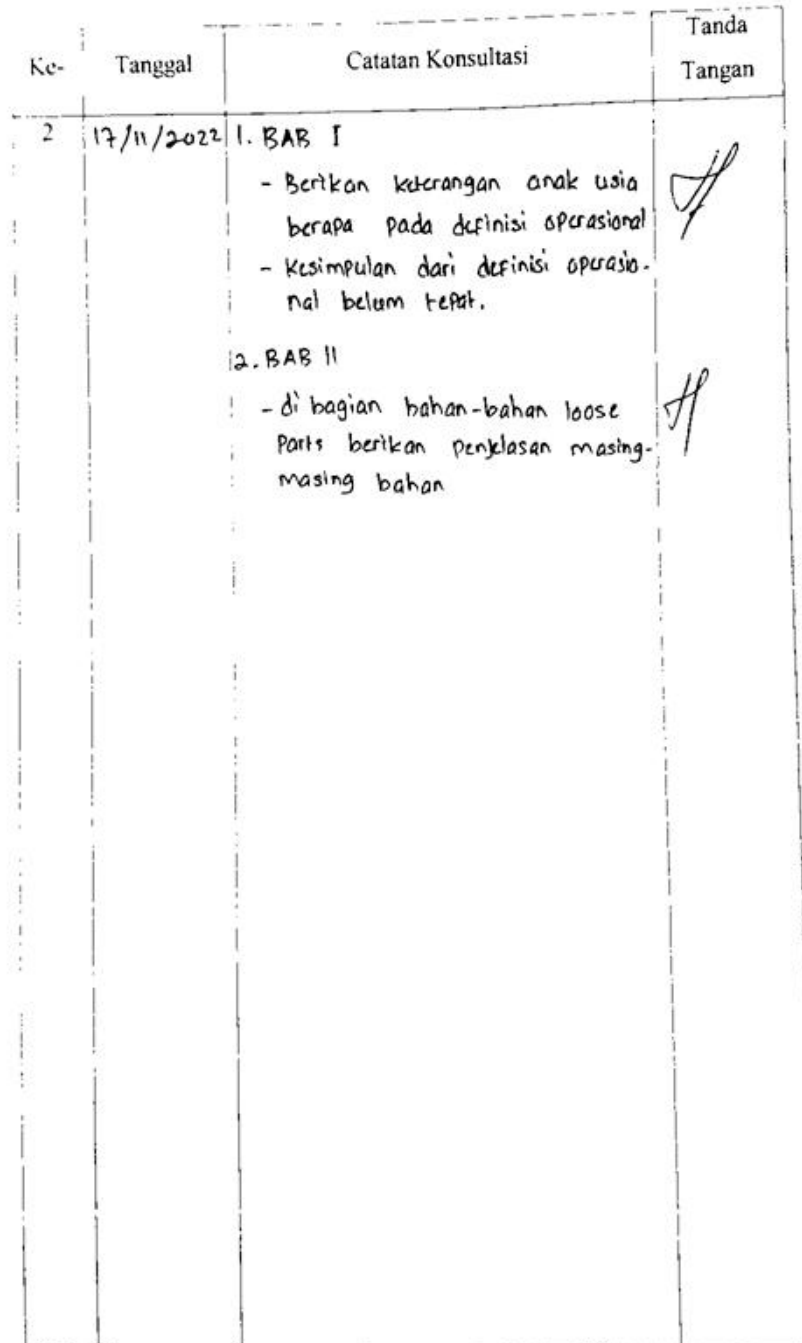 Ke- Tanggal Catatan Konsultasi Tanda
Tangan
2 17/11/2022 1. BAB I
- Berikan keterangan anak usia
berapa pada definisi operasional
- Kesimpulan dari definisi operasio-
nal belum tepat.
2. BAB II
- di bagian bahan-bahan loose
Parts berikan penjelasan masing-
masing bahan